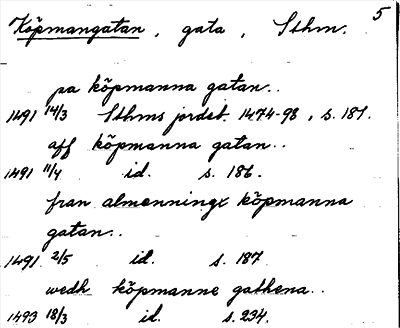 5
Köpmangatan, gata, Sthm.
pa köpmanna gatan..
1491 14/3 Sthms jordeb. 1474-98, s. 181.
aff köpmanna gatan..
1491 11/4 id. s. 186.
fran almenningx köpmanna
gatan..
1491 2/5 id. s. 187
wedh köpmanne gathena..
1493 18/3 id. s. 234.